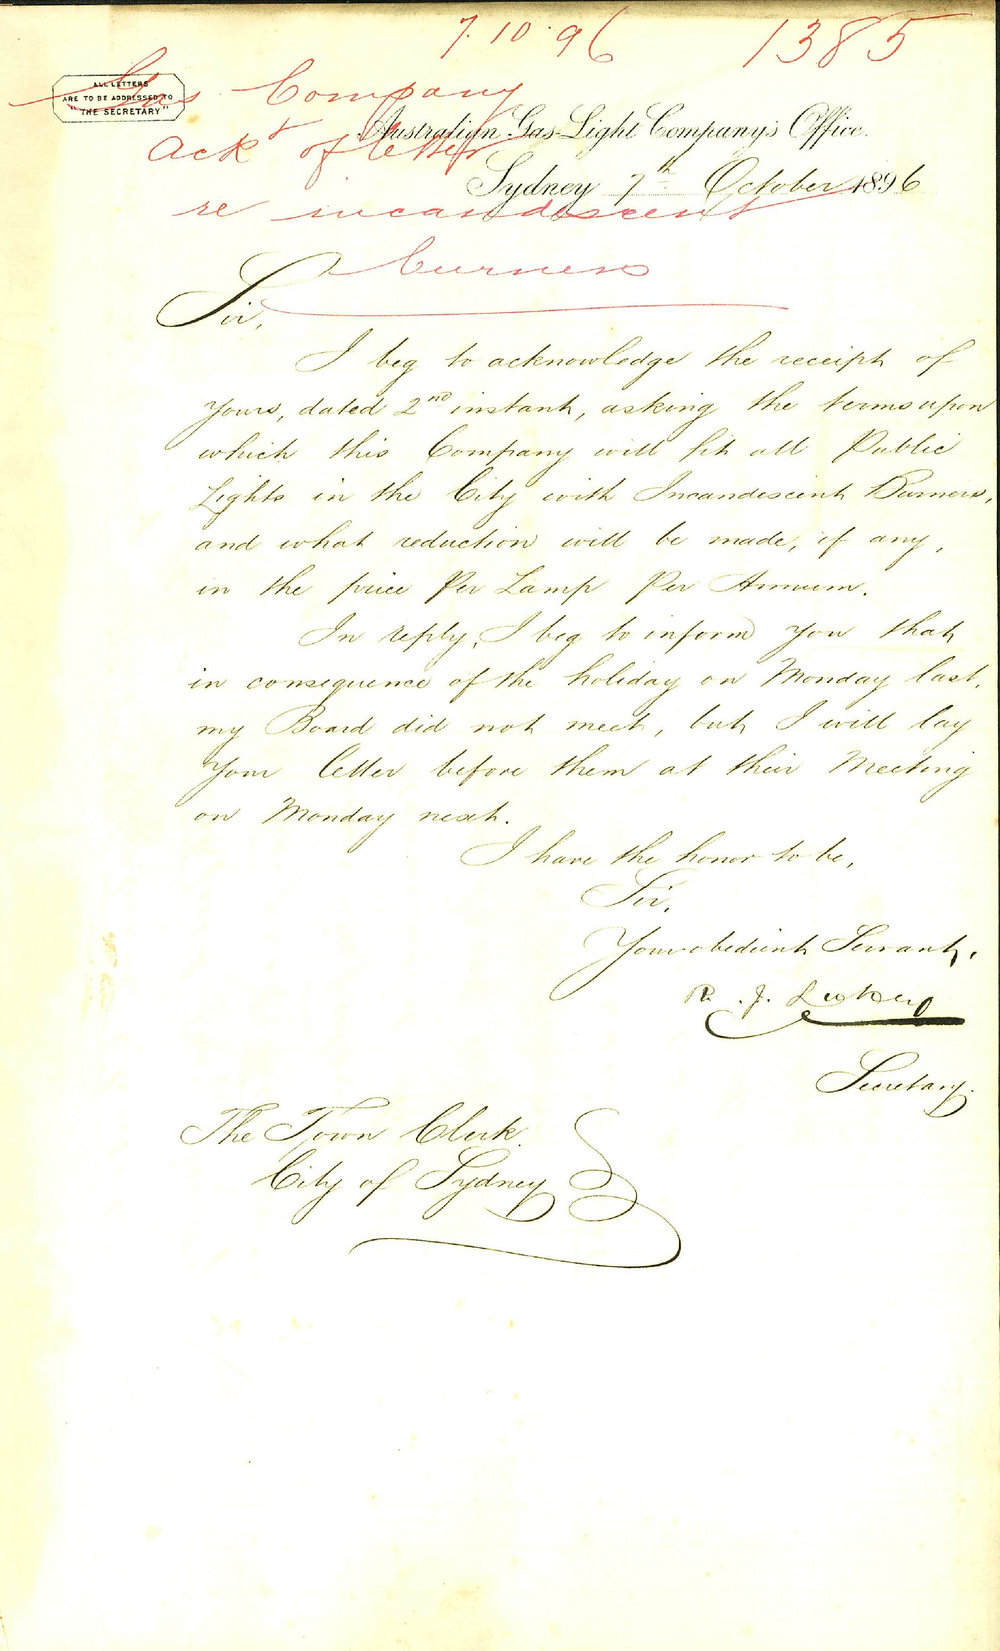 7.10.96 1385
ALL LETTERS
ARE TO BE ADDRESSED TO
"THE SECRETARY"
Gas Company
Australian Gas-Light Company's Office.
Ack^t of letter
Sydney 7th October 1896
re incandescent
burners
Sir,
I beg to acknowledge the receipt of
yours, dated 2nd instant, asking the terms upon
which this Company will fit all Public
Lights in the City with Incandescent Burners,
and what reduction will be made, if any,
in the price Per Lamp Per Annum.
In reply, I beg to inform you that
in consequence of the holiday on Monday last,
my Board did not meet, but I will lay
your letter before them at their Meeting
on Monday next.
I have the honor to be,
Sir,
Your obedient Servant,
R. J.
Secretary.
The Town Clerk.
City of Sydney